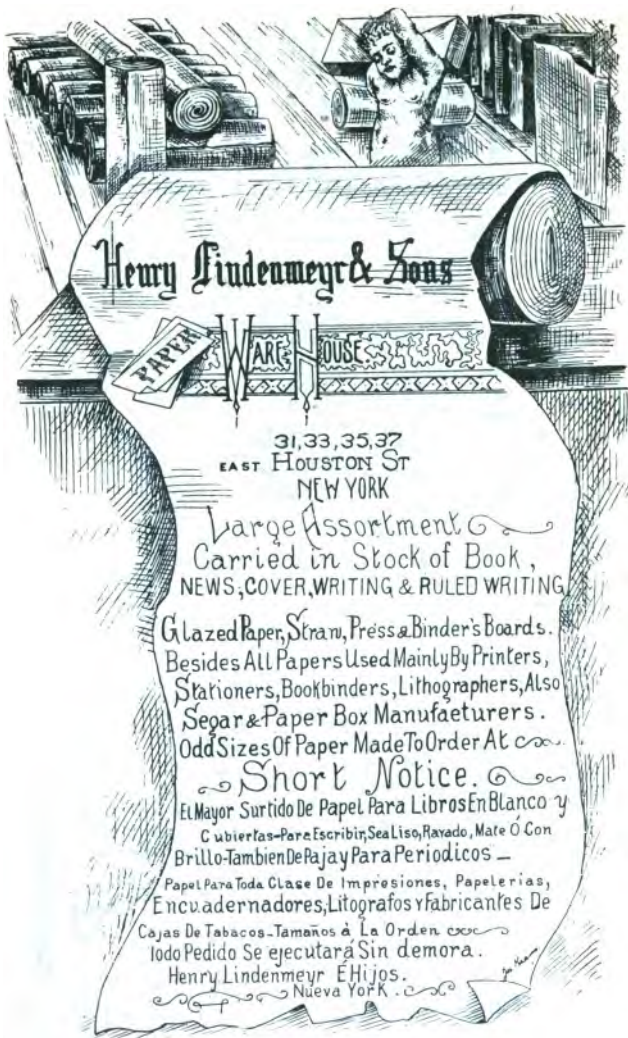 Henry Lindenmeyr & Sons
PAPER WARE HOUSE
31,33,35,37
EAST HOUSTON ST
NEW YORK
Large Assortment
Carried in Stock of Book,
NEWS, COVER, WRITING & RULED WRITING
Glazed Paper, Straw, Press & Binder's Boards.
Besides All Papers Used Mainly By Printers,
Stationers, Bookbinders, Lithographers, Also
Segar & Paper Box Manufacturers.
Odd Sizes Of Paper Made To Order At
Short Notice.
El Mayor Surtido De Papel Para Libros En Blanco y
Cubiertas-Para Escribir, Sea Liso, Rayado, Mate Ó Con
Brillo-Tambien De Paja y Para Periodicos _
Papel Para Toda Clase De Impresiones, Papelerias,
Encuadernadores, Litografos y Fabricantes De
Cajas De Tabacos-Tamaños à La Orden
Todo Pedido Se ejecutará Sin demora.
Henry Lindenmeyr É Hijos.
Nueva York.